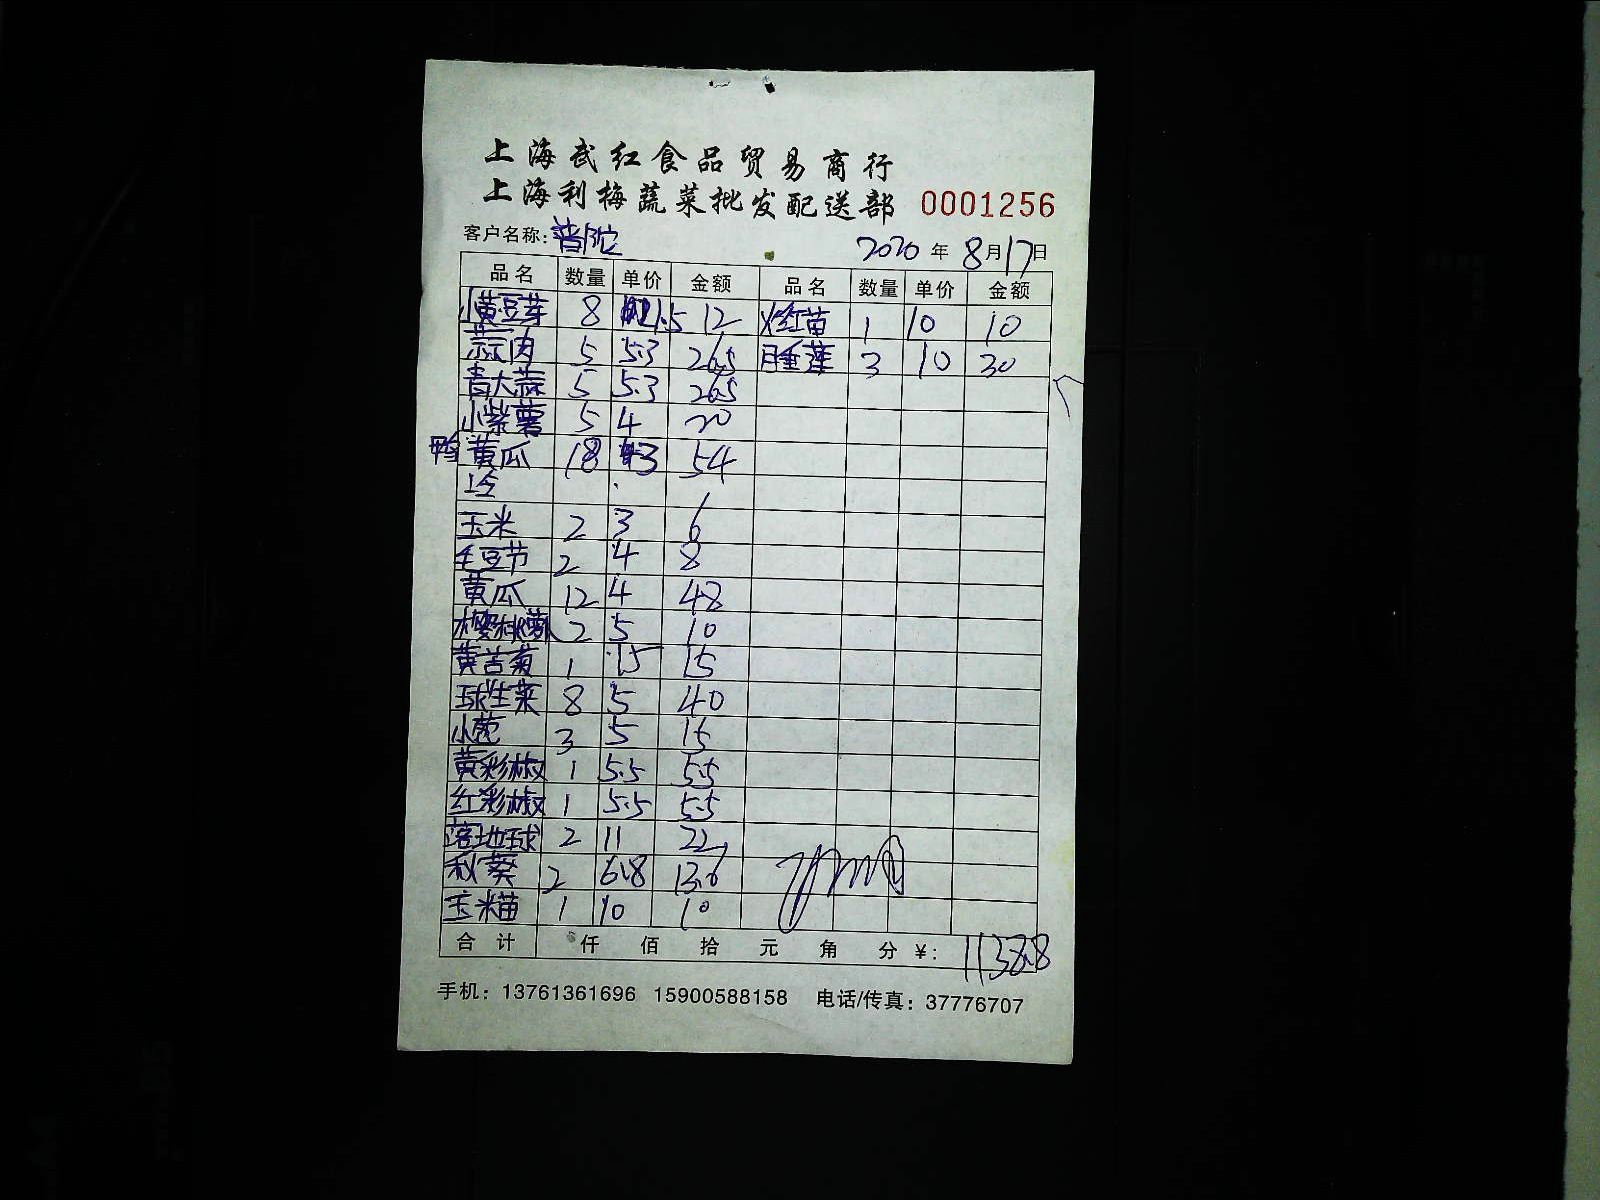 上海武红食品贸易商行
上海利梅蔬菜批发配送部 0001256
客户名称: 普陀 2020 年 8 月 17 日
品名 数量 单价 金额 品名 数量 单价 金额
小黄豆芽 8 1.5 12 火红苗 1 10 10
蒜肉 5 5.3 26.5 睡莲 3 10 30
青大蒜 5 5.3 26.5
小紫薯 5 4 20
鸭黄瓜 18 3 54
玉米 2 3 6
毛豆节 2 4 8
黄瓜 12 4 48
樱桃萝卜 2 5 10
黄苦菊 1 15 15
球生菜 8 5 40
小葱 3 5 15
黄彩椒 1 5.5 5.5
红彩椒 1 5.5 5.5
落地球 2 11 22
秋葵 2 6.8 13.6
玉米苗 1 10 10
合计 仟 佰 拾 元 角 分 ¥: 1138.8
手机: 13761361696 15900588158 电话/传真: 37776707